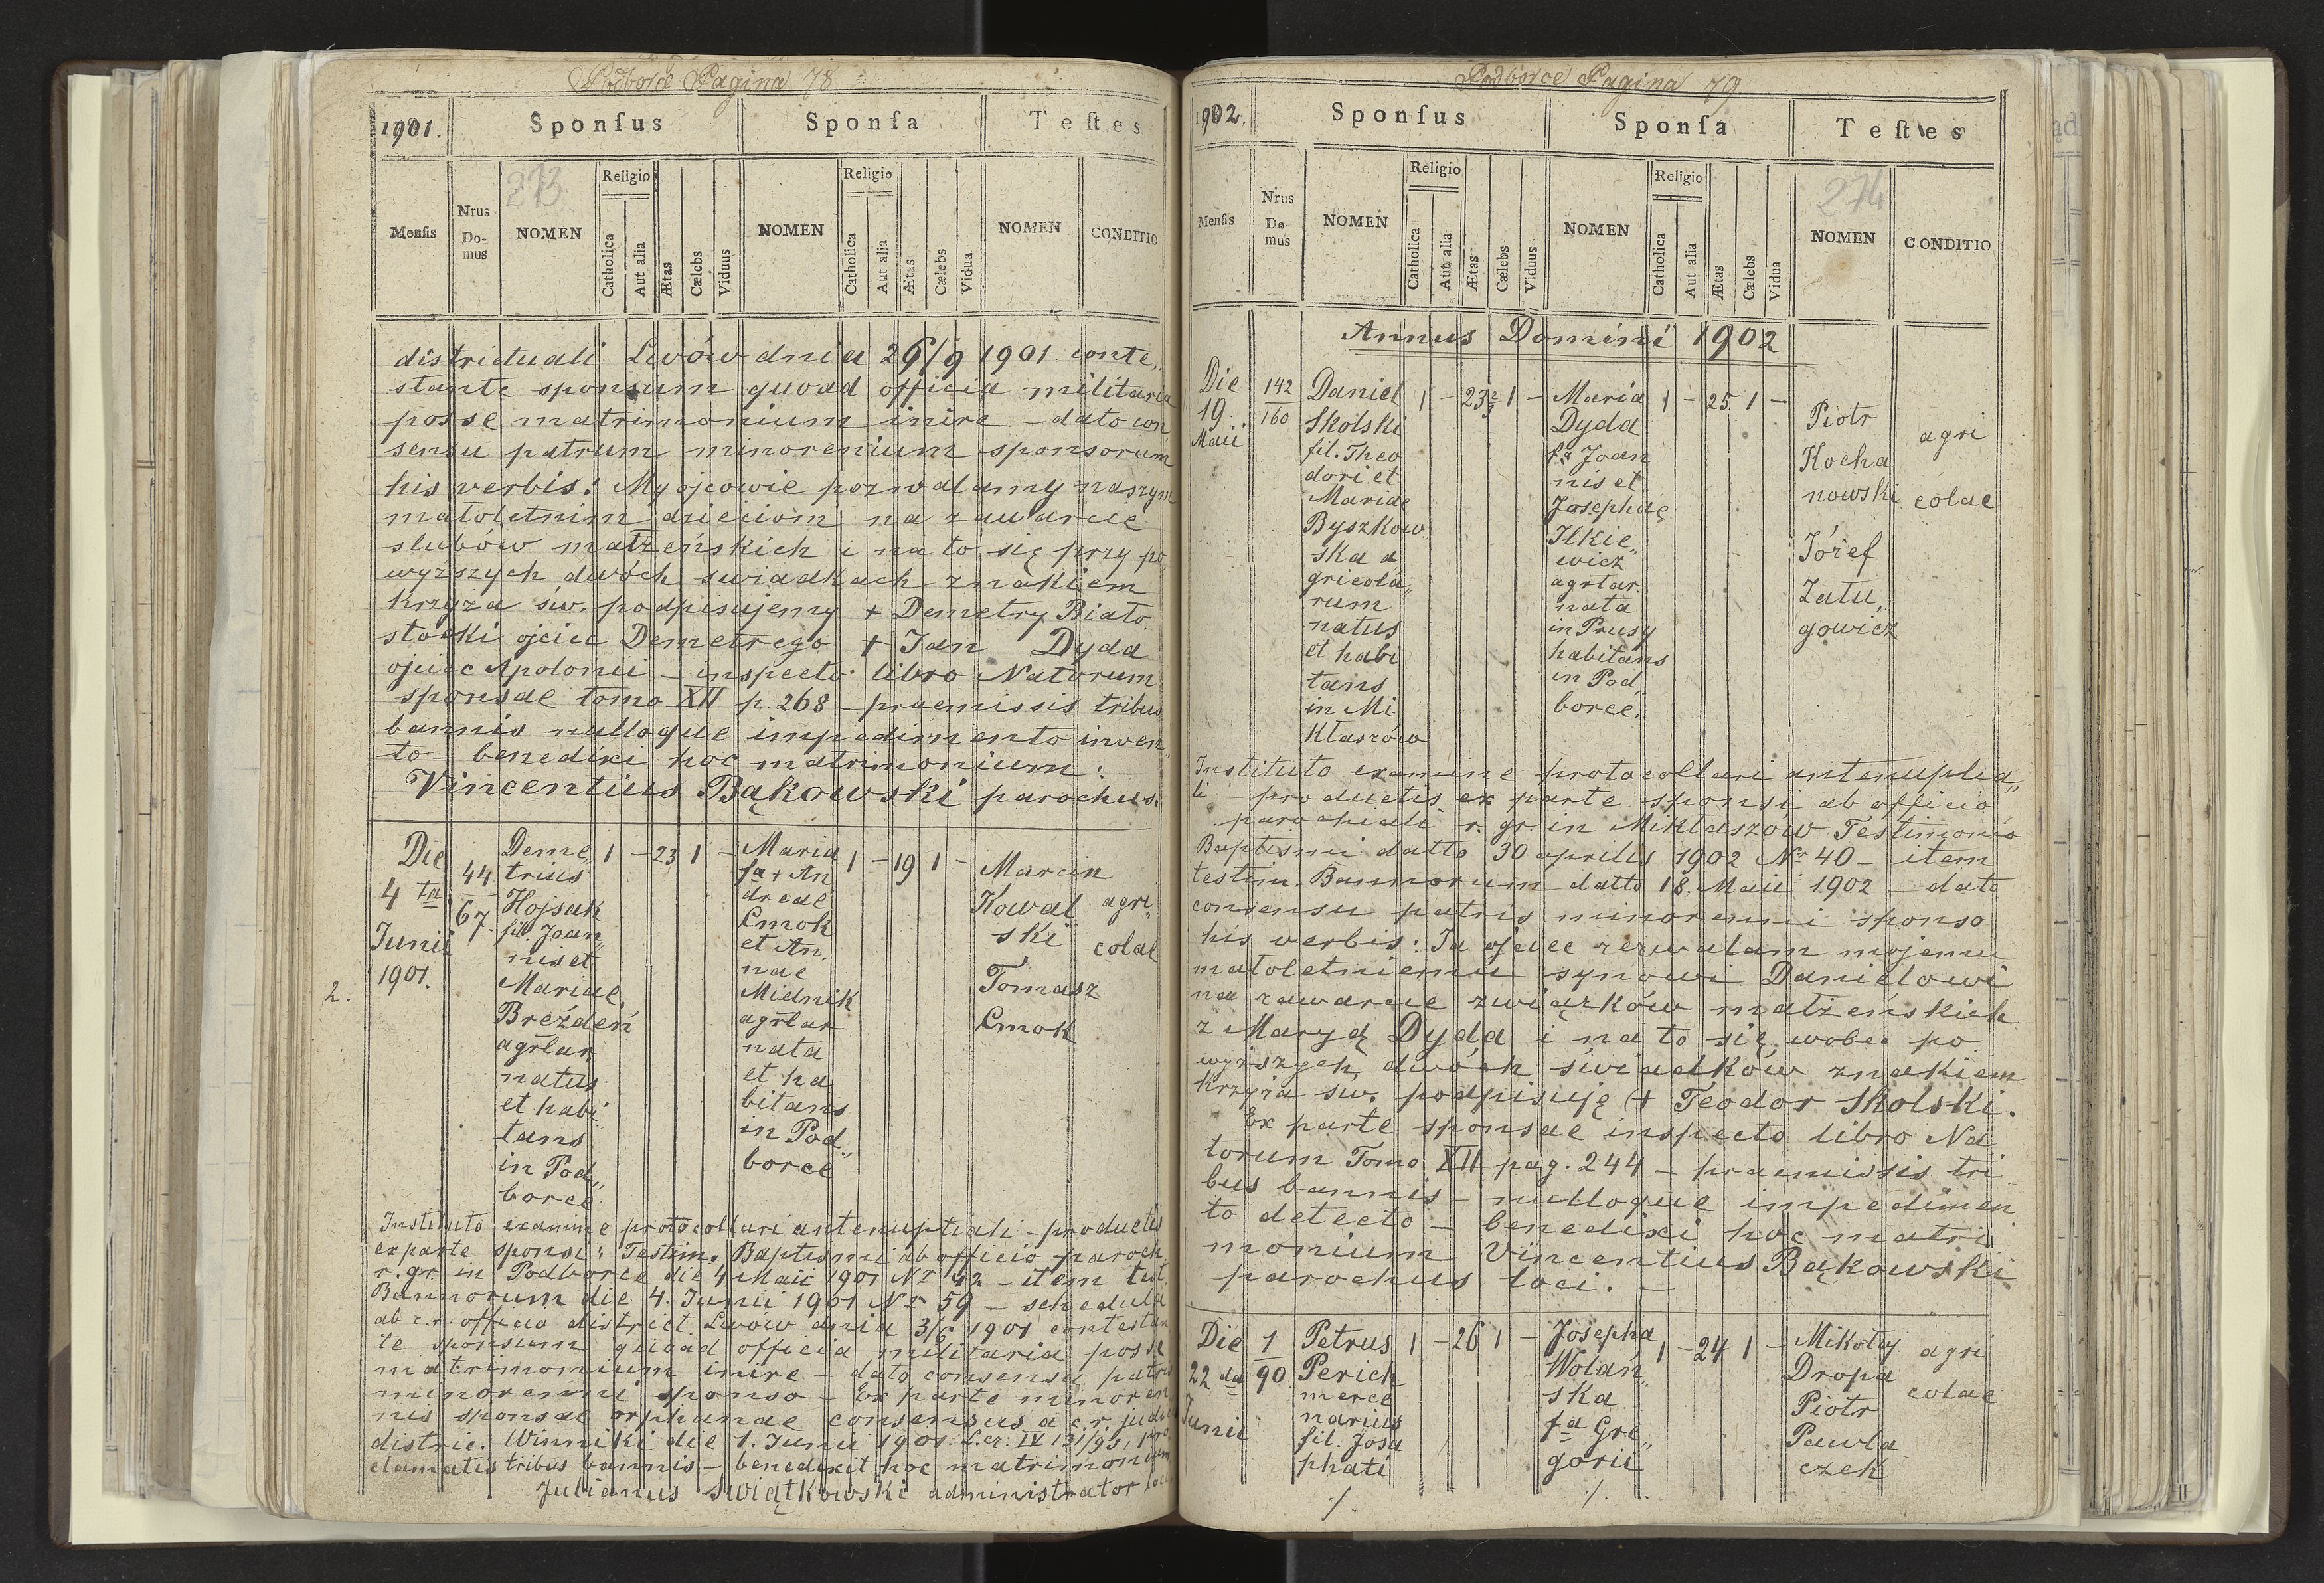 Podborce Pagina 78
1901.
Sponſus
Sponſa
Teſtes
Menſis
Nrus Do-mus
273
NOMEN
Religio
Catholica
Aut alia
Ætas
Cælebs
Viduus
NOMEN
Religio
Catholica
Aut alia
Ætas
Cælebs
Vidua
NOMEN
CONDITIO
districtuali Lwów dnia 26/9 1901 conte„
stante sponsum quoad officia militaria
posse matrimonium inire - dato con
sensu patrum minorenium sponsorum
his verbis: My ojcowie pozwalamy naszym
małoletnim dzieciom na zawarcie
slubów małżeńskich i na to się przy po
wyższych dwóch swiadkach znakiem
Krzyża św. podpisujemy + Demetry Biało
stocki ojciec Demetrego + Jan Dyda
ojciec Apolonii - inspecto libro Natorum
sponsae tomo XII p. 268 - praemissis tribus
bannis nulloque impedimento inven„
to - benedixi hoc matrimonium:
Vincentius Bąkowski parochus.
2.
Die
4 ta
Junii
1901.
44
67.
Deme„
trius
Hojsak
fil. Joan„
nis et
Mariae
Breżdeń
agrlar.
natus
et habi
tans
in Pod„
borce
1 - 23 1 -
Maria
fa + An
dreae
Cmok
et An.
nae
Midnik
agrlar
nata
et ha
bitans
in Pod„
borce
1 - 19 1 -
Marcin
Kowal
ski
Tomasz
Cmok
agri„
colae
Instituto examine protocollari antenuptiali - productis
ex parte sponsi: Testim. Baptismi ab officio paroch.
r. gr. in Podborce die 4 Maii 1901 Nr 42 - item test.
Bannorum die 4. Junii 1901 Nr 59 - schedula
ab c.r. officio district. Lwow dnia 3/6 1901 contestan
te sponsum quoad officia militaria posse
matrimonium inire - dato consensu patris
minorenni sponso - Ex parte minoren
nis sponsae orphanae consensus a c.r. judic
distric. Winniki die 1. Junii 1901 L.cr: IV 131/93, pro
clamatis tribus bannis - benedixit hoc matrimonium
Julianus Swiątkowski administrator loci
Podborce Pagina 79
1902.
Sponſus
Sponſa
Teſtes
Menſis
Nrus Do-mus
NOMEN
Religio
Catholica
Aut alia
Ætas
Cælebs
Viduus
NOMEN
Religio
Catholica
Aut alia
Ætas
Cælebs
Vidua
274
NOMEN
CONDITIO
Annus Domini 1902
Die
19.
Maii
142
160
Daniel
Skolski
fil. Theo
dori et
Mariae
Byszkow
ska a
gricola„
rum
natus
et habi
tans
in Mi
kłaszów
1 - 23 1 -
Maria
Dyda
fa Joan
nis et
Josephae
Ilkie„
wicz
agrlar.
nata
in Prusy
habitans
in Pod„
borce.
1 - 25 1 -
Piotr
Kocha
nowski
Józef
Zatu„
gowicz
agri
colae
Instituto examine protocollari antenuptia„
li - productis ex parte sponsi ab officio
parochiali r. gr. in Mikłaszów Testimonio
Baptismi datto 30 aprilis 1902 Nr 40 - item
testim. Bannorum datto 18. Maii 1902 - dato
consensu patris minorenni sponso
his verbis: Ja ojciec zezwalam mojemu
małoletniemu synowi Danielowi
na zawarcie związków małżeńskich
z Maryą Dyda i na to się wobec po
wyższych dwóch świadków znakiem
Krzyża św. podpisuję + Teodor Skolski.
Ex parte sponsae inspecto libro Na
torum Tomo XII pag. 244 - praemissis tri
bus bannis - nulloque impedimen
to detecto - benedixi hoc matri
monium Vincentius Bąkowski
parochus loci.
Die
22 da
Junii
1
90
Petrus
Perich
merce
narius
fil. Josa
phati
./.
1 - 26 1 -
Josepha
Wolań„
ska
fa Gre„
gorii
./.
1 - 24 1 -
Mikołaj
Dropa
Piotr
Pawła
czek
agri
colae